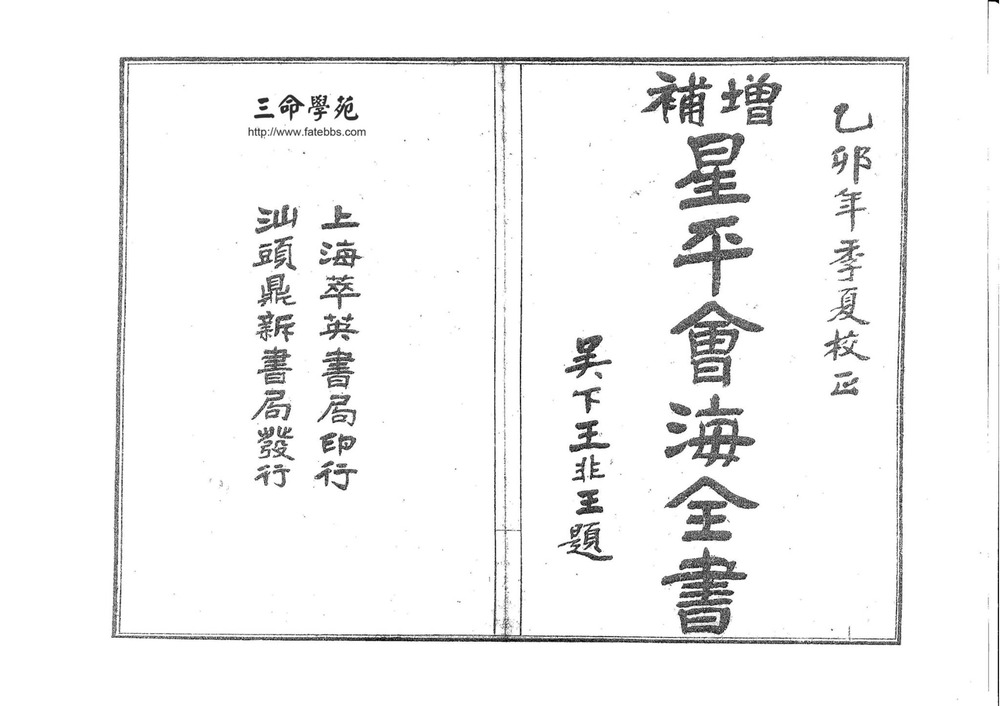 乙卯年季夏校正
增補
星平會海全書
吴下王非王題
三命學苑
http://www.fatebbs.com
上海萃英書局印行
汕頭鼎新書局發行